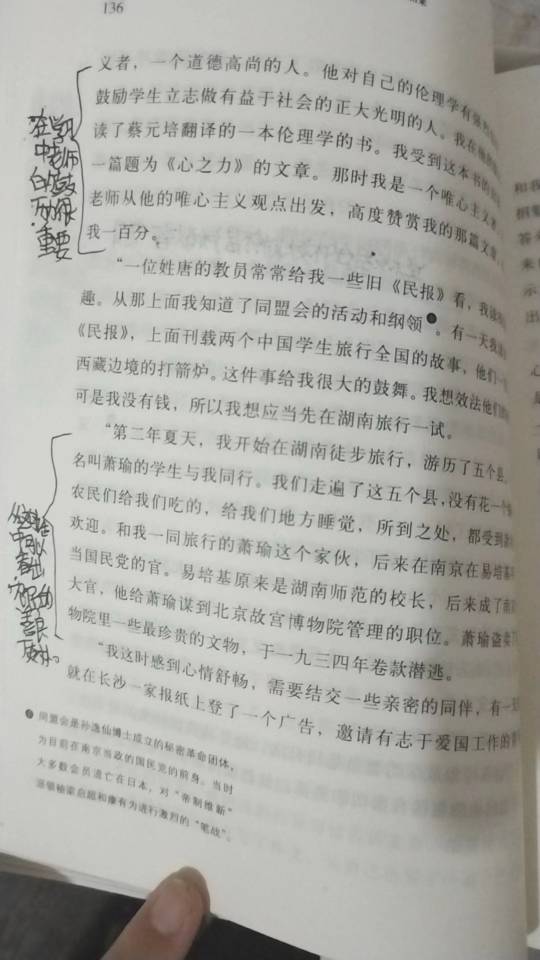 136
义者，一个道德高尚的人。他对自己的伦理学有强烈
鼓励学生立志做有益于社会的正大光明的人。我在他的
读了蔡元培翻译的一本伦理学的书。我受到这本书的
一篇题为《心之力》的文章。那时我是一个唯心主义者，
老师从他的唯心主义观点出发，高度赞赏我的那篇文章，
我一百分。
“一位姓唐的教员常常给我一些旧《民报》看，我
趣。从那上面我知道了同盟会的活动和纲领。有一天我
《民报》，上面刊载两个中国学生旅行全国的故事，他们一
西藏边境的打箭炉。这件事给我很大的鼓舞。我想效法他们的
可是我没有钱，所以我想应当先在湖南旅行一试。
“第二年夏天，我开始在湖南徒步旅行，游历了五个县。
名叫萧瑜的学生与我同行。我们走遍了这五个县，没有花一个
农民们给我们吃的，给我们地方睡觉，所到之处，都受到
欢迎。和我一同旅行的萧瑜这个家伙，后来在南京在易培基
当国民党的官。易培基原来是湖南师范的校长，后来成了南京
大官，他给萧瑜谋到北京故宫博物院管理的职位。萧瑜盗卖了
物院里一些最珍贵的文物，于一九三四年卷款潜逃。
“我这时感到心情舒畅，需要结交一些亲密的同伴，有一天
就在长沙一家报纸上登了一个广告，邀请有志于爱国工作的
同盟会是孙逸仙博士成立的秘密革命团体，
为目前在南京当政的国民党的前身。当时
大多数会员流亡在日本，对“帝制维新”
派领袖梁启超和康有为进行激烈的“笔战”。
老师
重要